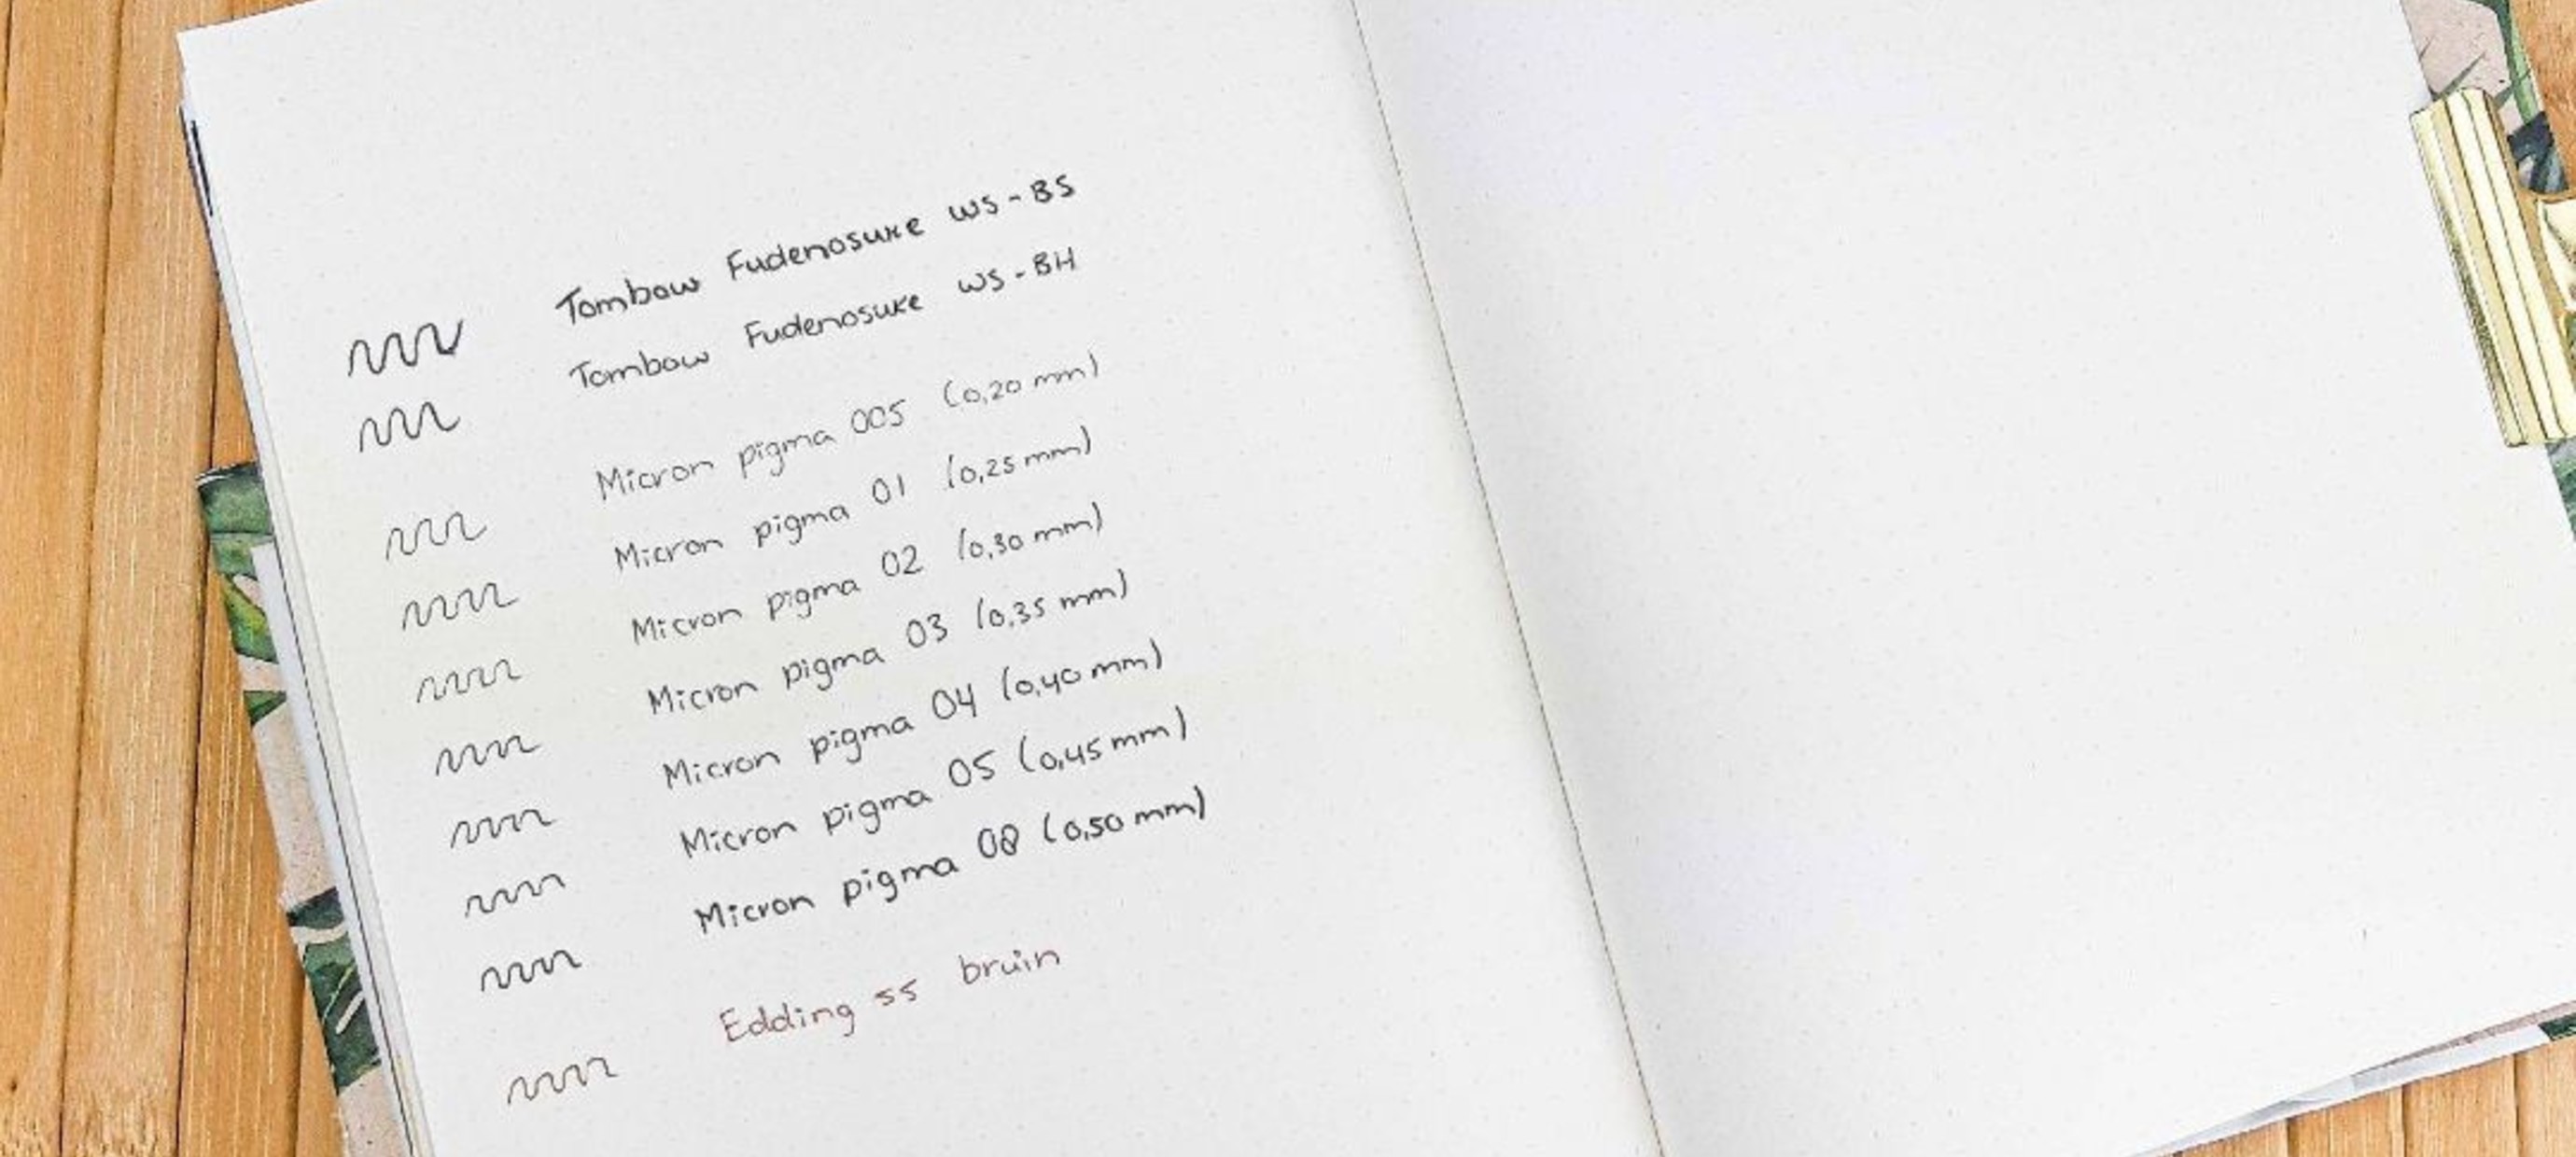 Tombow Fudenosuke WS-BS
Tombow Fudenosuke WS-BH
Micron pigma 005 (0,20 mm)
Micron pigma 01 (0,25 mm)
Micron pigma 02 (0,30 mm)
Micron pigma 03 (0,35 mm)
Micron pigma 04 (0,40 mm)
Micron pigma 05 (0,45 mm)
Micron pigma 08 (0,50 mm)
Edding 55 bruin